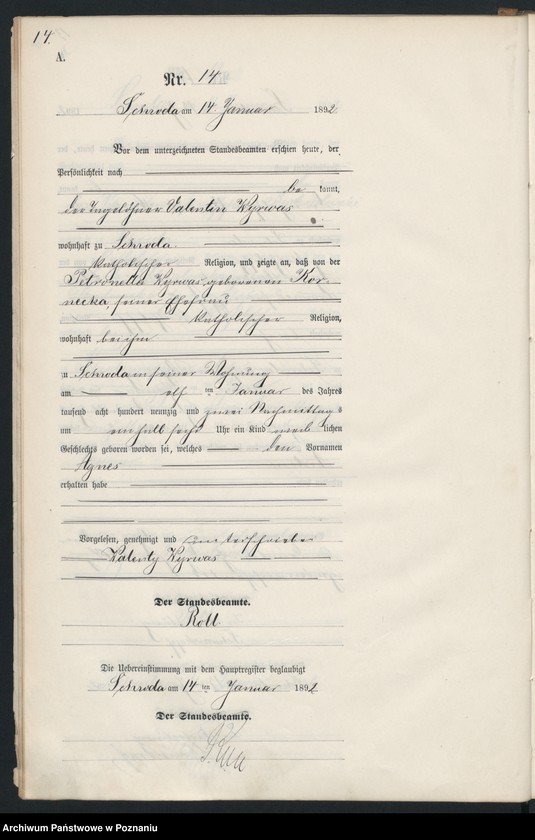 14.
A.
Nr. 14
Schroda am 14 Januar 1892
Vor dem unterzeichneten Standesbeamten erschien heute, der
Persönlichkeit nach
be kannt,
der Tagelöhner Valentin Kyrwas
wohnhaft zu Schroda
katholischer Religion, und zeigte an, daß von der
Petronella Kyrwas geborenen Kor-
necka, seiner Ehefrau
katholischer Religion,
wohnhaft bei ihm
zu Schroda in seiner Wohnung
am elf ten Januar des Jahres
tausend acht hundert neunzig und zwei Nachmittag s
um ein halb sechs Uhr ein Kind weib lichen
Geschlechts geboren worden sei, welches den Vornamen
Agnes
erhalten habe
Vorgelesen, genehmigt und unterschrieben
Walenty Kyrwas
Der Standesbeamte.
Roll
Die Uebereinstimmung mit dem Hauptregister beglaubigt
Schroda am 14 ten Januar 1892
Der Standesbeamte.
Archiwum Państwowe w Poznaniu